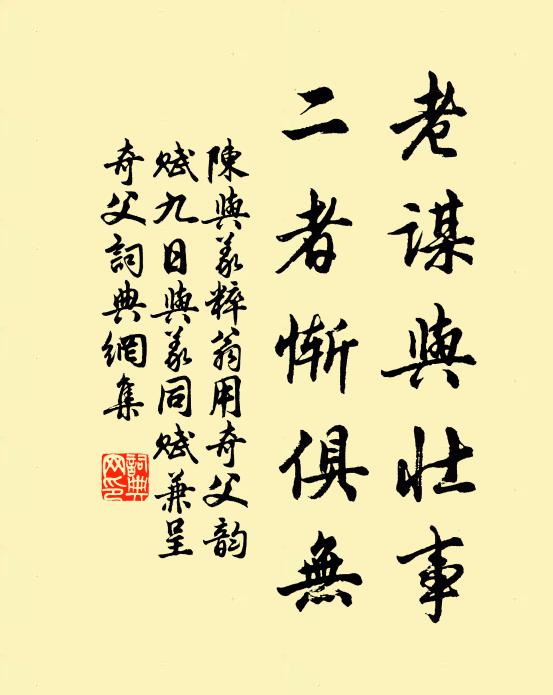 老謀與壯事
二者慚俱無
陳與義粹翁用奇父韵
賦九日與義同賦兼呈
奇父詞典網集
詞典
网印